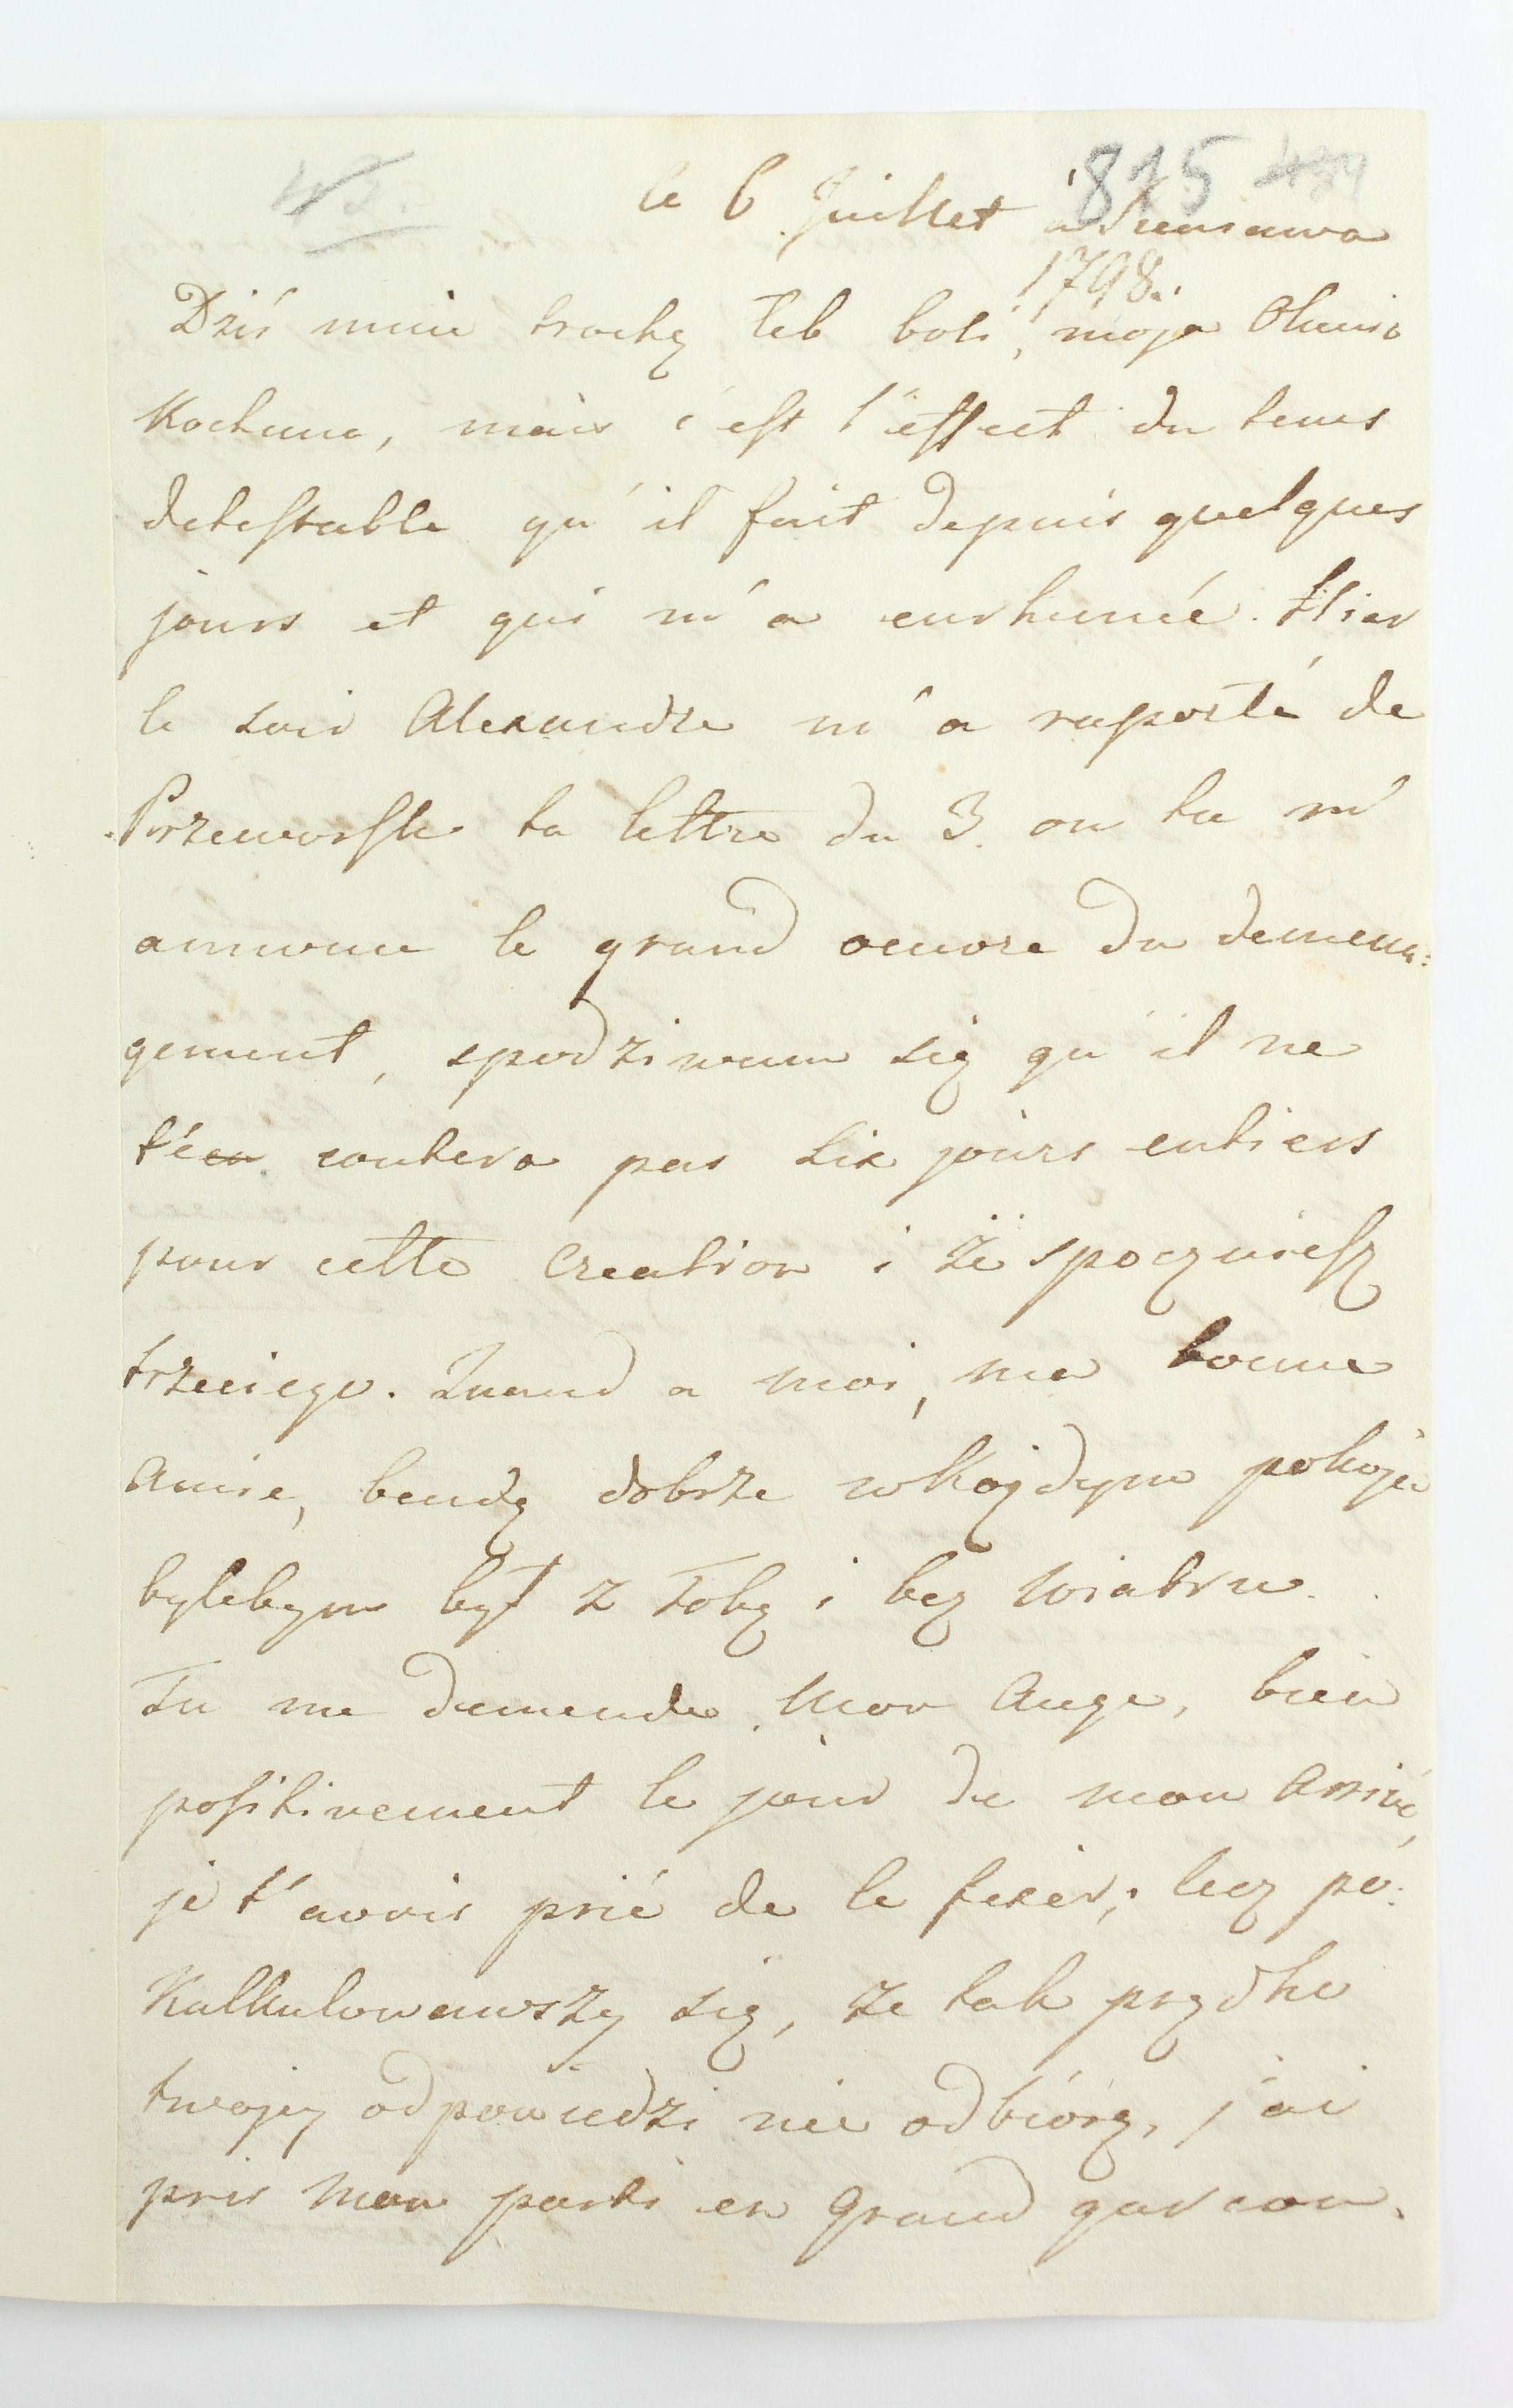 815
le 6 Juillet à Sieniawa
1798.
Dziś mnie trochę łeb boli, moja Olunio
Kochana, mais c'est l'effect du tems
detestable qu'il fait depuis quelques
jours et qui m'a enrhumé. Hier
le soir Alexandre m'a raporté de
Przeworsk ta lettre du 3. ou tu m'
annonce le grand oeuvre du demena:
gement, spodziwam się qu'il ne
t'en coutera pas six jours entiers
pour cette Creation i że spoczniesz
trzeciego. Quand a moi, ma bonne
Amie, bendę dobrze wkażdym pokoju
bylebym był z Tobą i bez Wiatru.
Tu me demende Mon Ange, bien
positivement le jour de mon Arrivé,
je t'avois prié de le fixer; lecz po:
Kalkulowawszy się, że tak prędko
twojej odpowiedzi nie odbiorę, j'ai
pris mon parti en Grand garcon.